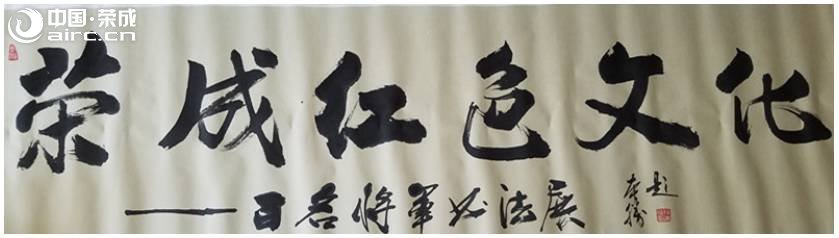 中国·荣成
airc.cn
荣成红色文化
——百名将军书法展
题